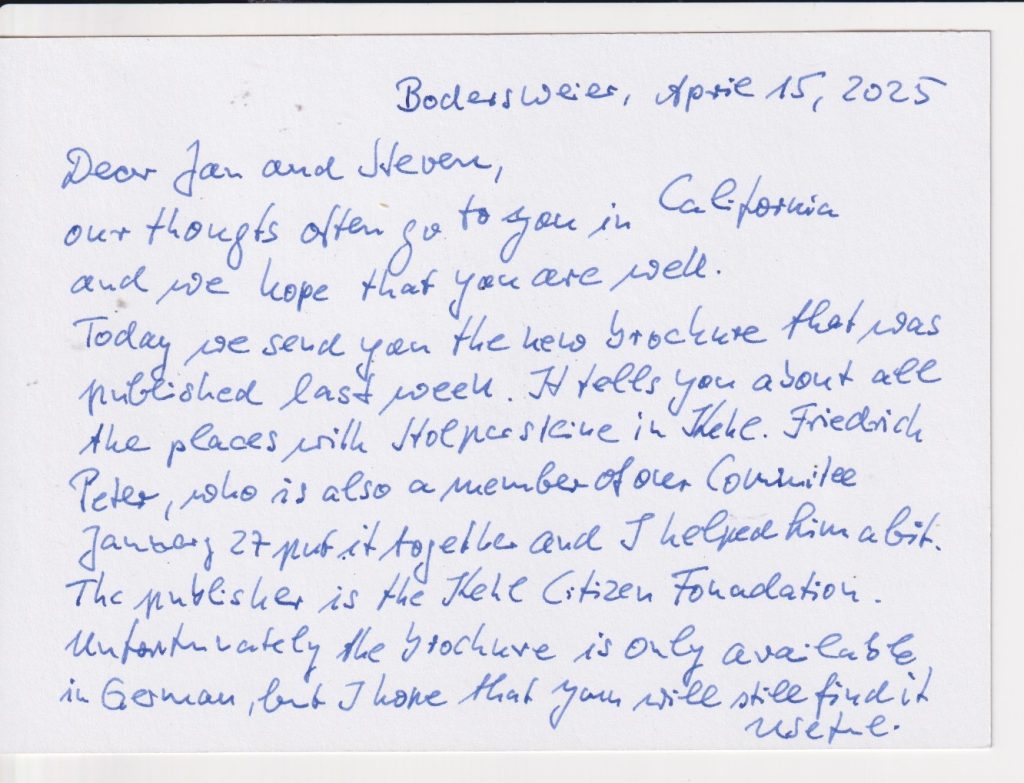 Bodersweier, April 15, 2025
Dear Jan and Steven,
our thougts often go to you in California
and we hope that you are well.
Today we send you the new brochure that was
published last week. It tells you about all
the places with Stolpersteine in Kehl. Friedrich
Peter, who is also a member of our Commitee
January 27 put it together and I helped him a bit.
The publisher is the Kehl Citizen Foundation.
Unfortunately the brochure is only available
in German, but I hope that you will still find it
useful.